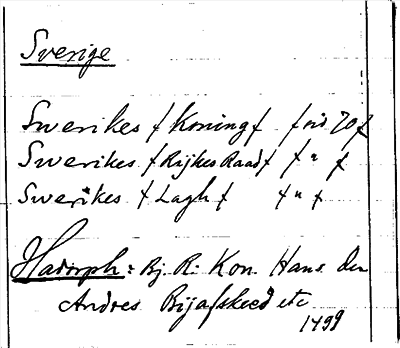 Sverige
Swerikes / Koning / frid 20 f
Swerikes / Rijkes Raad / / " /
Swerikes / Lagh / / " /
Hadorph: Bj. R: Kon. Hans den
Andres Bijafskeed etc
1499